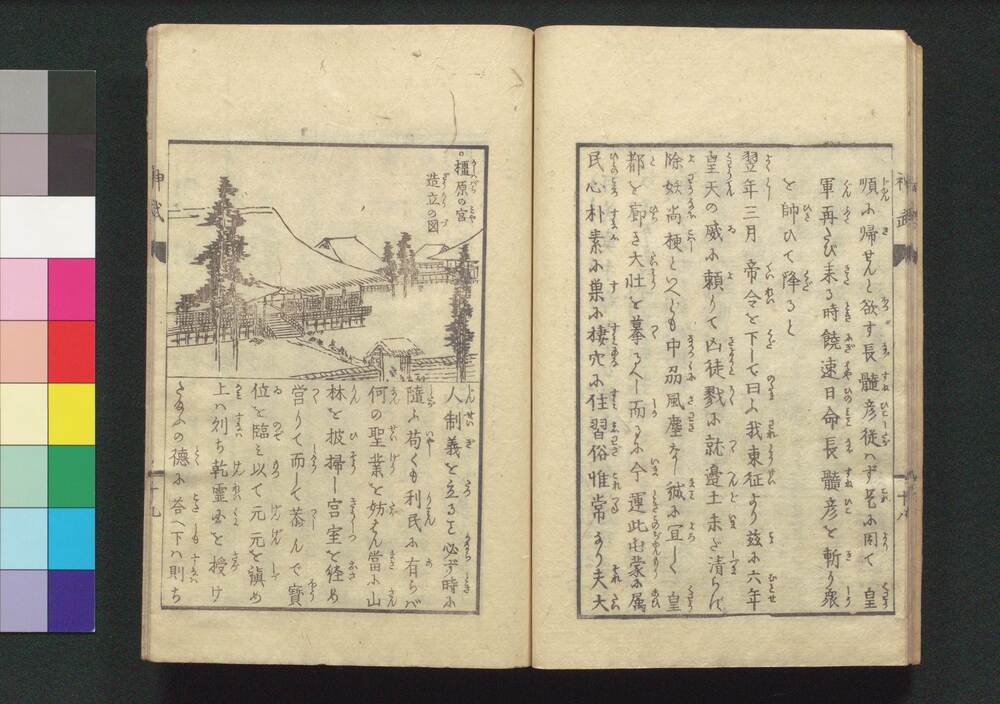 神武
順に帰せんと欲す長髄彦従はず是に因て皇
軍再たび来る時饒速日命長髄彦を斬り衆
を帥ひて降ると
翌年三月帝令を下して曰よ我東征より茲に六年
皇天の威に頼りて凶徒戮に就邊土未だ清らず
除妖尚梗と云ども中州風塵なし誠に宜しく皇
都を廓き大壮を摹るべし而るに今運此屯蒙に属
民心朴素に巣に棲穴に住習俗惟常なり夫大
十八
神武
橿原の宮
造立の図
人制義を立るを必ず時に
隨ふ苟くも利民に有らば
何の聖業を妨げん當に山
林を披掃し宮室を経め
営りて而して恭んで寶
位を臨み以て元元を鎭め
上は則ち乾霊の国を授け
たまふの徳に荅へ下は則ち
十九